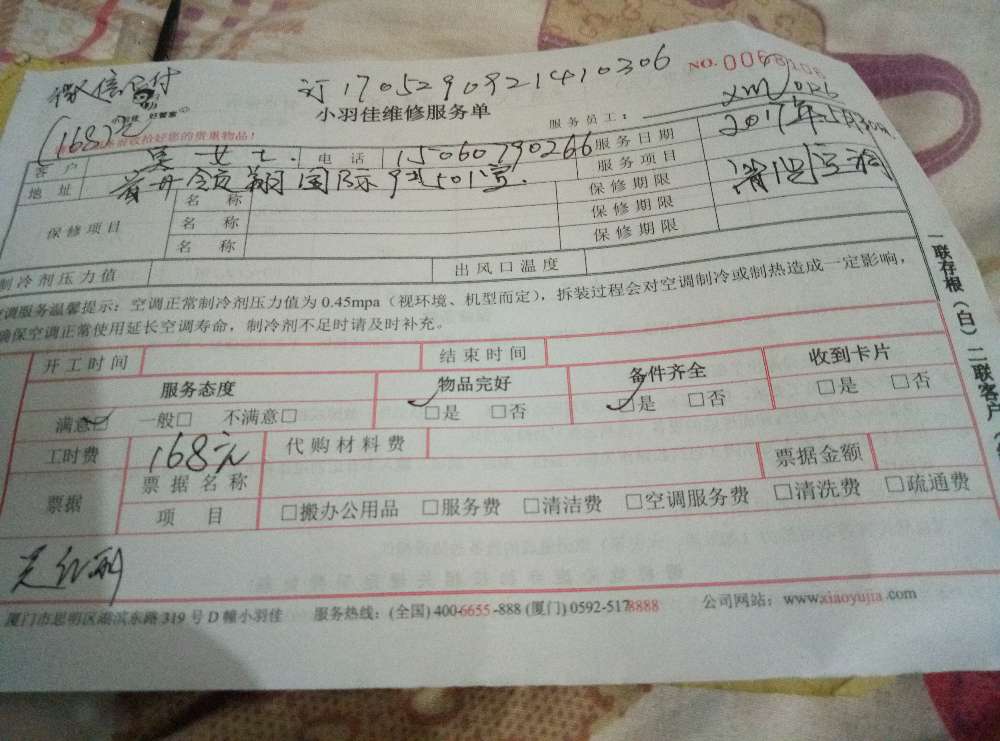 微信已付
订170529092141410306
NO.
小羽佳维修服务单
(168元)
好管家
收拾好您的贵重物品！
服务员工：
客户 吴女士. 电话 15060790266 服务日期 2017年5月30日
地址 国际 501室. 服务项目
保修项目 名称 保修期限
名称 保修期限
名称 保修期限
制冷剂压力值 出风口温度
空调服务温馨提示：空调正常制冷剂压力值为 0.45mpa（视环境、机型而定），拆装过程会对空调制冷或制热造成一定影响，
确保空调正常使用延长空调寿命，制冷剂不足时请及时补充。
开工时间 结束时间
服务态度 物品完好 备件齐全 收到卡片
满意☑ 一般□ 不满意□ □是 □否 □是 □否 □是 □否
工时费 168元 代购材料费 票据金额
票据 票据名称
项目 □搬办公用品 □服务费 □清洁费 □空调服务费 □清洗费 □疏通费
厦门市思明区湖滨东路 319 号 D 幢小羽佳 服务热线：(全国) 400-6655-888 (厦门) 0592-5178888 公司网站：www.xiaoyujia.com
一联存根（白）二联客户